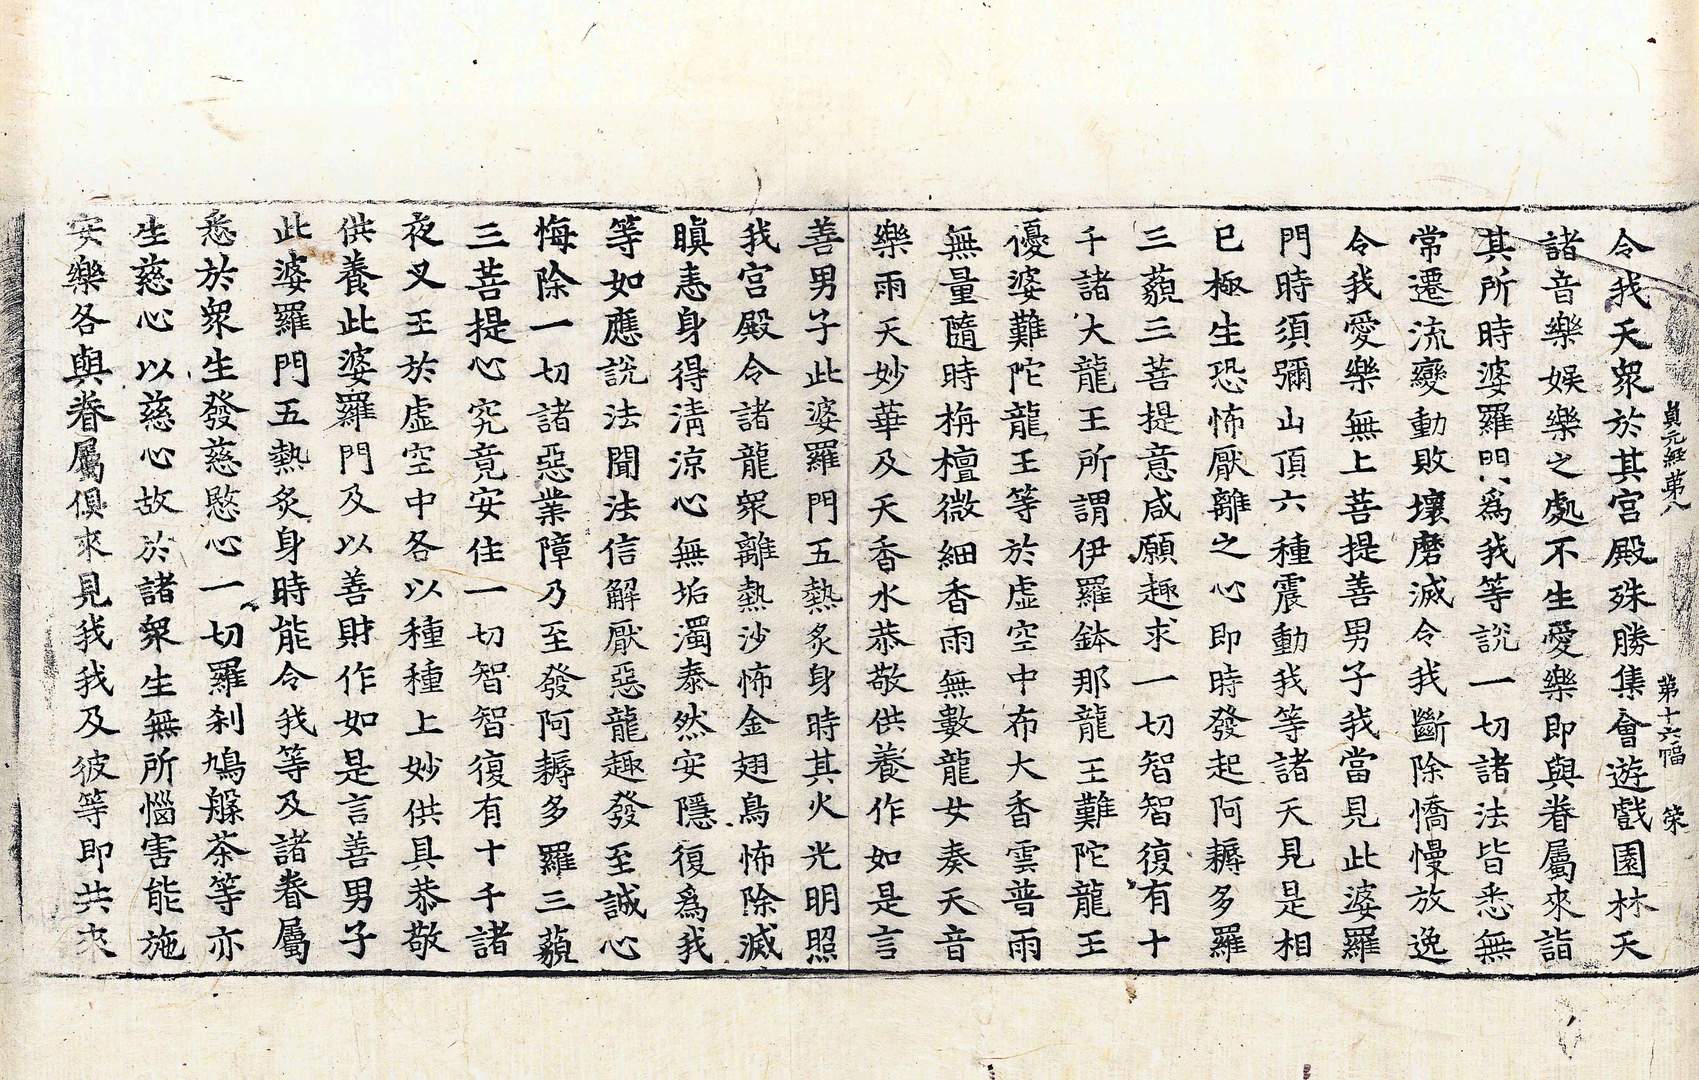 貞元經第八 第十六幅 榮
令我天衆於其宮殿殊勝集會遊戲園林天
諸音樂娛樂之處不生愛樂即與眷屬來詣
其所時婆羅門爲我等說一切諸法皆悉無
常遷流變動敗壞磨滅令我斷除憍慢放逸
令我愛樂無上菩提善男子我當見此婆羅
門時須彌山頂六種震動我等諸天見是相
已極生恐怖厭離之心即時發起阿耨多羅
三藐三菩提意咸願趣求一切智智復有十
千諸大龍王所謂伊羅鉢那龍王難陀龍王
優婆難陀龍王等於虛空中布大香雲普雨
無量隨時栴檀微細香雨無數龍女奏天音
樂雨天妙華及天香水恭敬供養作如是言
善男子此婆羅門五熱炙身時其火光明照
我宮殿令諸龍衆離熱沙怖金翅鳥怖除滅
瞋恚身得清涼心無垢濁泰然安隱復爲我
等如應說法聞法信解厭惡龍趣發至誠心
悔除一切諸惡業障乃至發阿耨多羅三藐
三菩提心究竟安住一切智智復有十千諸
夜叉王於虛空中各以種種上妙供具恭敬
供養此婆羅門及以善財作如是言善男子
此婆羅門五熱炙身時能令我等及諸眷屬
悉於衆生發慈愍心一切羅剎鳩槃茶等亦
生慈心以慈心故於諸衆生無所惱害能施
安樂各與眷屬俱來見我我及彼等即共來